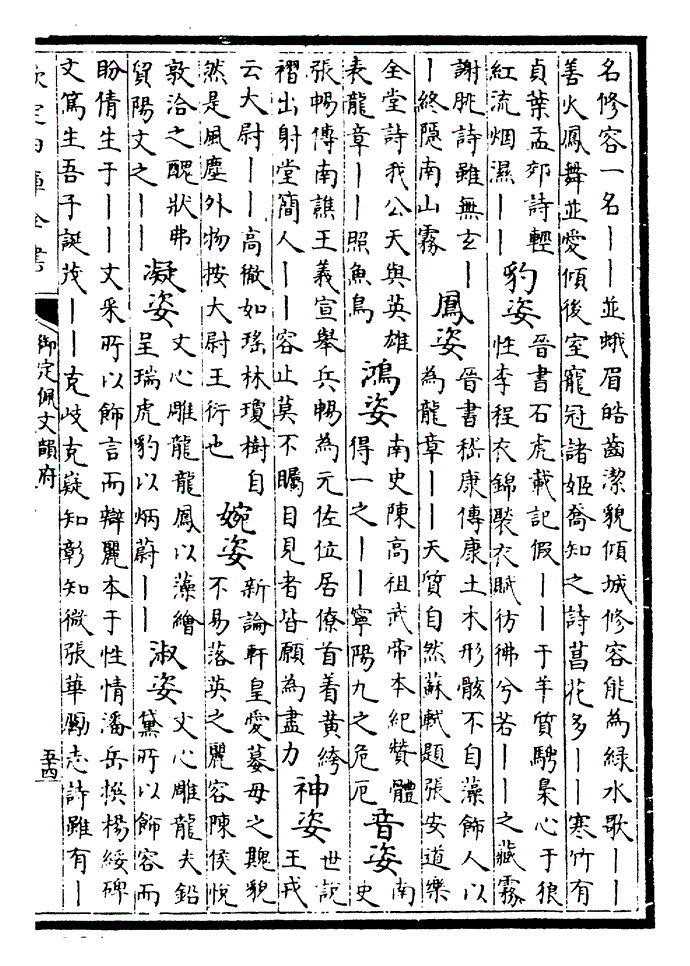 名修容一名——並蛾眉皓齒潔貌傾城修容能為綠水歌——
善火鳳舞並愛傾後室寵冠諸姬喬知之詩菖花多——寒竹有
貞葉孟郊詩輕
紅流烟濕——
豹姿
晉書石虎載記假——于羊質騁梟心于狼
性李程衣錦褧衣賦彷彿兮若——之藏霧
謝朓詩雖無玄—
—終隱南山霧
鳳姿
晉書嵇康傳康土木形骸不自藻飾人以
為龍章——天質自然蘇軾題張安道樂
全堂詩我公天與英雄
表龍章——照魚鳥
鴻姿
南史陳高祖武帝本紀贊體
得一之——寧陽九之危厄
音姿
南
史
張暢傳南譙王義宣舉兵暢為元佐位居僚首着黃袴
褶出射堂簡人——容止莫不矚目見者皆願為盡力
神姿
世說
王戎
云大尉——高徹如瑤林瓊樹自
然是風塵外物按大尉王衍也
婉姿
新論軒皇愛嫫母之醜貌
不易落英之麗容陳侯悅
敦洽之醜狀弗
貿陽文之——
凝姿
文心雕龍龍鳳以藻繪
呈瑞虎豹以炳蔚——
淑姿
文心雕龍夫鉛
黛所以飾容而
盼倩生于——文采所以飾言而辯麗本于性情潘岳撰楊綏碑
文篤生吾子誕茂——克岐克嶷知彰知微張華勵志詩雖有—
欽定四庫全書
御定佩文韻府
五十四